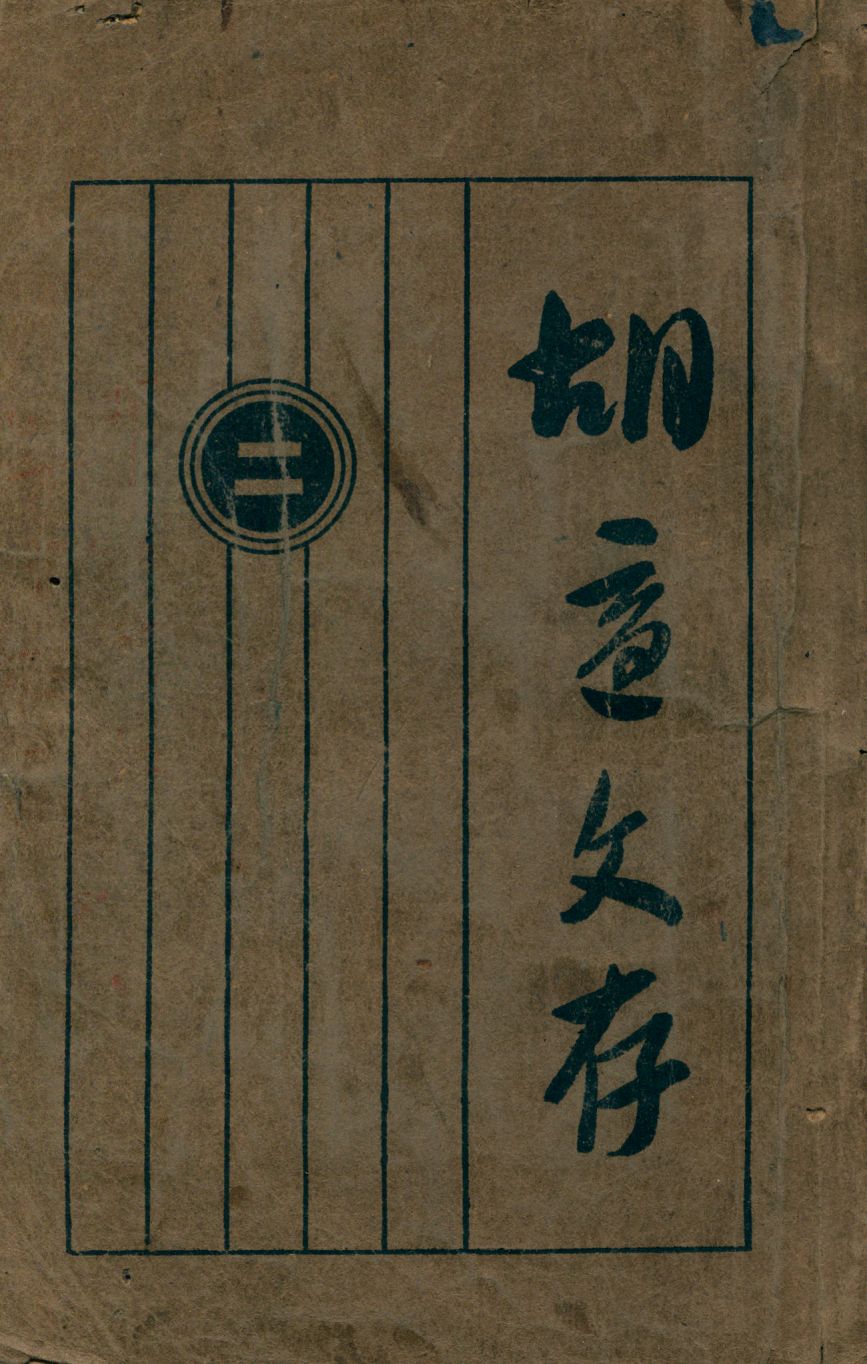 胡適文存
二